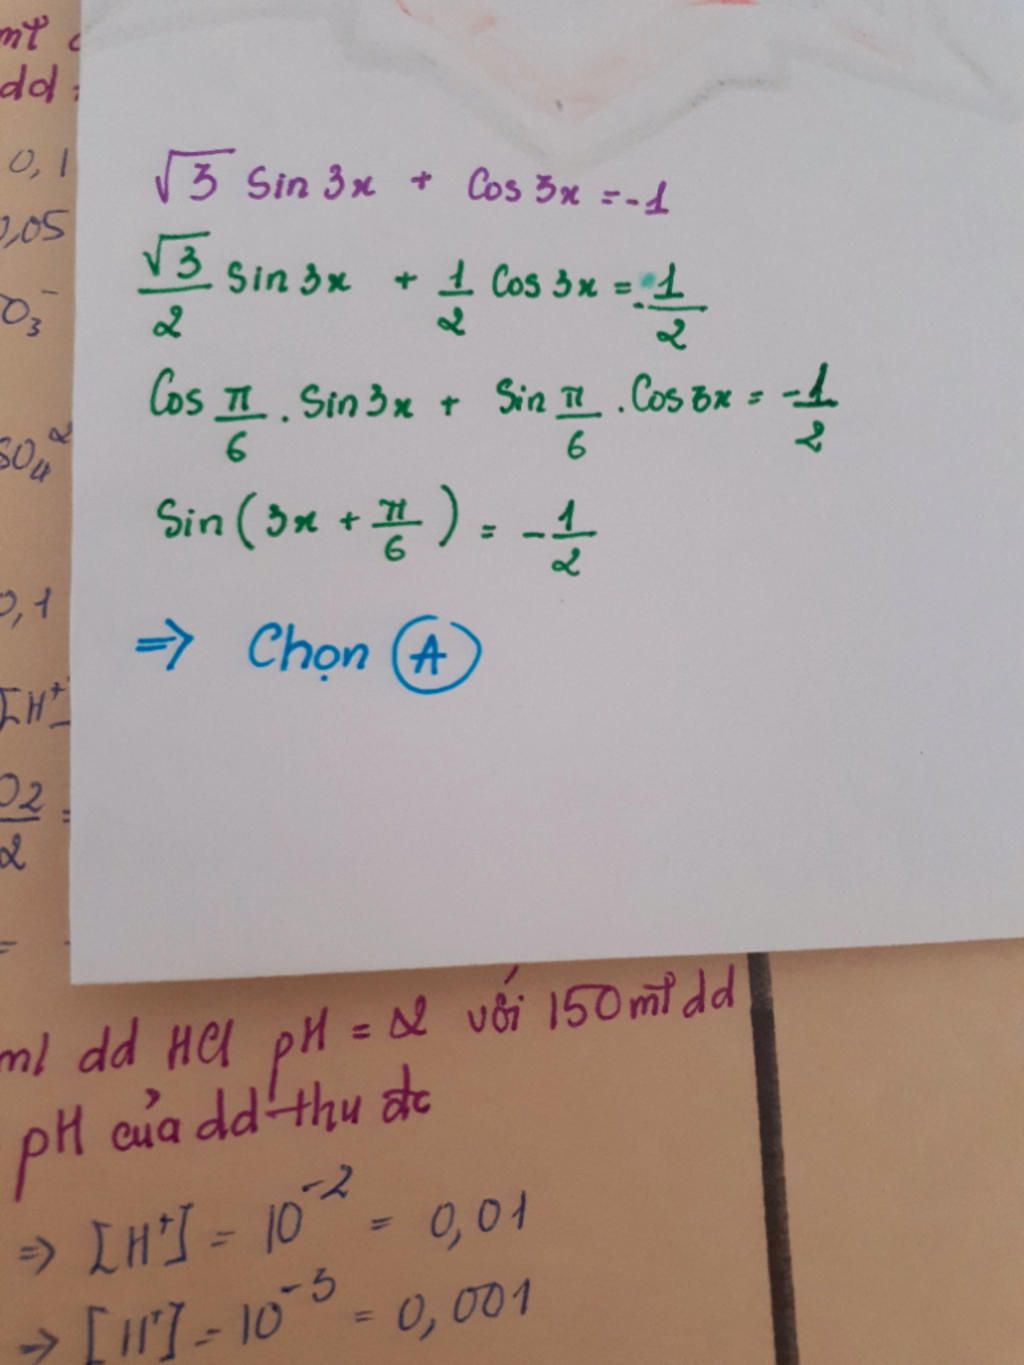 mł
dd
0,1
0,05
O₃⁻
SO₄²
0,1
[H⁺
O2/2 =
=
√3 Sin 3x + Cos 3x = -1
√3/2 Sin 3x + 1/2 Cos 3x = -1/2
Cos π/6 . Sin 3x + Sin π/6 . Cos 3x = -1/2
Sin (3x + π/6) = -1/2
⇒ Chọn Ⓐ
ml dd HCl pH = 2 với 150 ml dd
pH của dd thu đc
⇒ [H⁺] = 10⁻² = 0,01
⇒ [H⁺] = 10⁻³ = 0,001